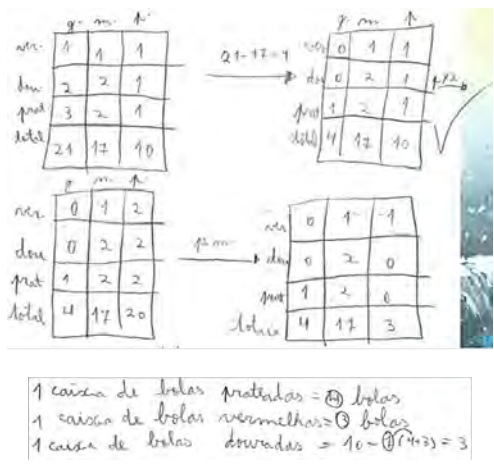 g. m. p.
ver. 1 1 1
dou 2 2 1
prat 3 2 1
total 21 17 10
21-17=4
g. m. p
ver 0 1 1
dou 0 2 1
prat 1 2 1
total 4 17 10
px2
g. m. p.
ver. 0 1 2
dou 0 2 2
prat 1 2 2
total 4 17 20
ver 0 1 -1
dou 0 2 0
prat 1 2 0
4 17 3
1 caixa de bolas prateadas = 4 bolas
1 caixa de bolas vermelhas = 3 bolas
1 caixa de bolas douradas = 10 - 1(4+3) = 3